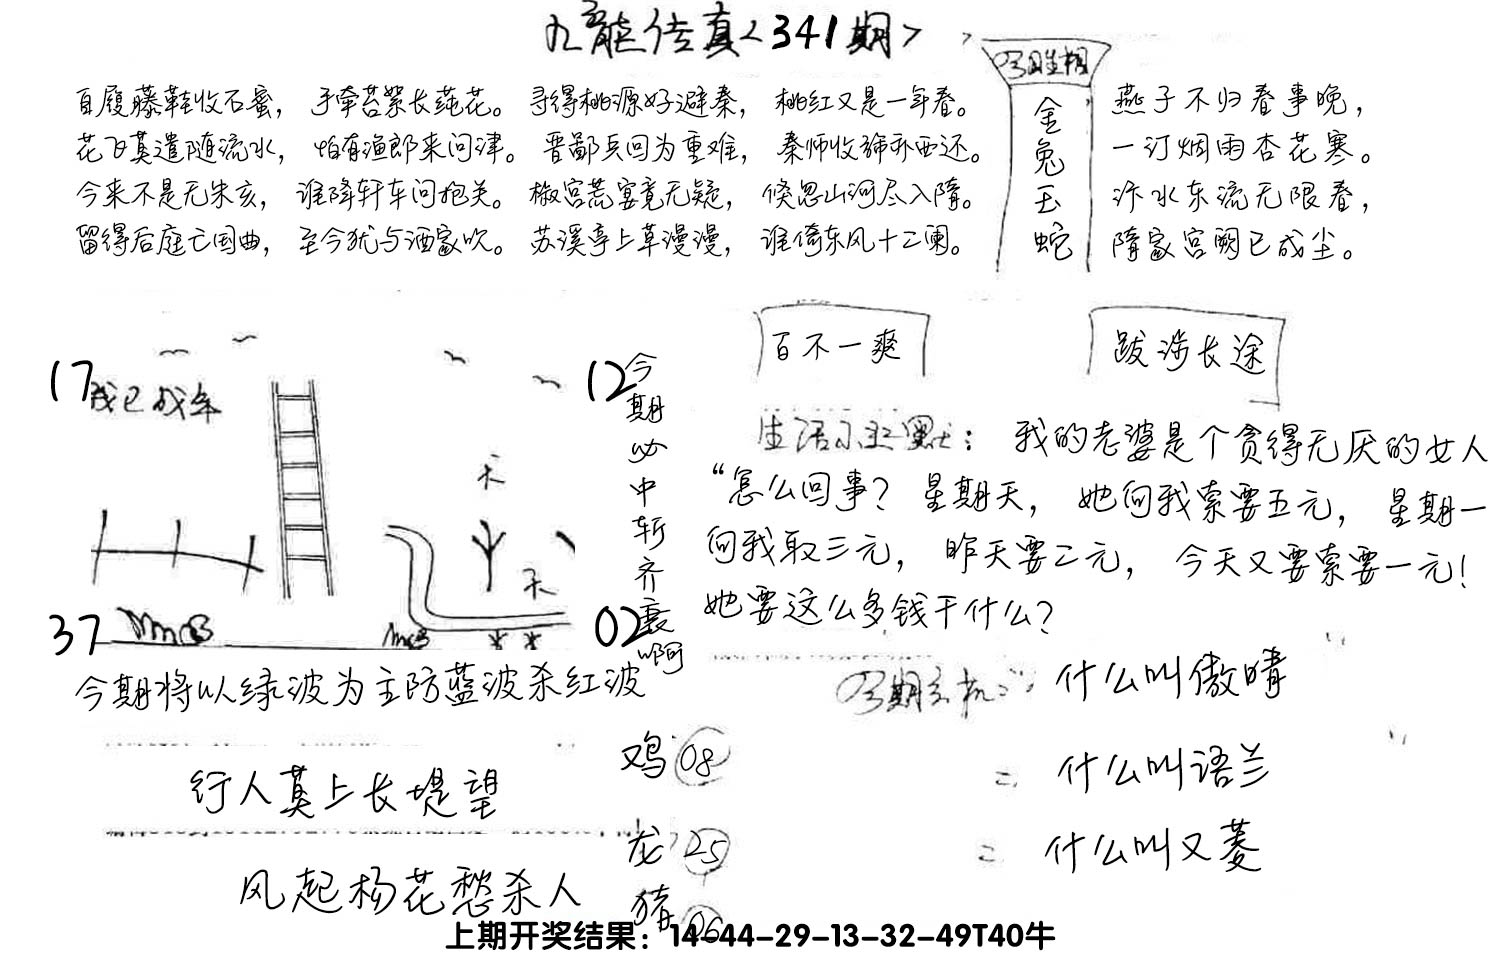 九龙传真<341期>
百履藤鞋收石蜜，手牵苔絮长莼花。寻得桃源好避秦，桃红又是一年春。
花飞莫遣随流水，怕有渔郎来问津。晋鄙兵回为重难，秦师收旆亦西还。
今来不是无朱亥，谁降轩车问抱关。椒宫荒宴竟无疑，倏忽山河尽入隋。
留得后庭亡国曲，至今犹与酒家吹。苏溪亭上草漫漫，谁倚东风十二阑。
今期生相
金兔玉蛇
燕子不归春事晚，
一汀烟雨杏花寒。
汴水东流无限春，
隋家宫阙已成尘。
17
我已成年
12
天
天
37
02
今期必中斩齐襄啊
百不一爽
跋涉长途
生活小幽默：我的老婆是个贪得无厌的女人
“怎么回事？星期天，她向我索要五元，星期一
向我取三元，昨天要二元，今天又要索要一元！
她要这么多钱干什么？
今期将以绿波为主防蓝波杀红波
行人莫上长堤望
风起杨花愁杀人
鸡 08
龙 25
猪 06
今期玄机：什么叫傲晴
什么叫语兰
什么叫又菱
上期开奖结果：14-44-29-13-32-49T40牛